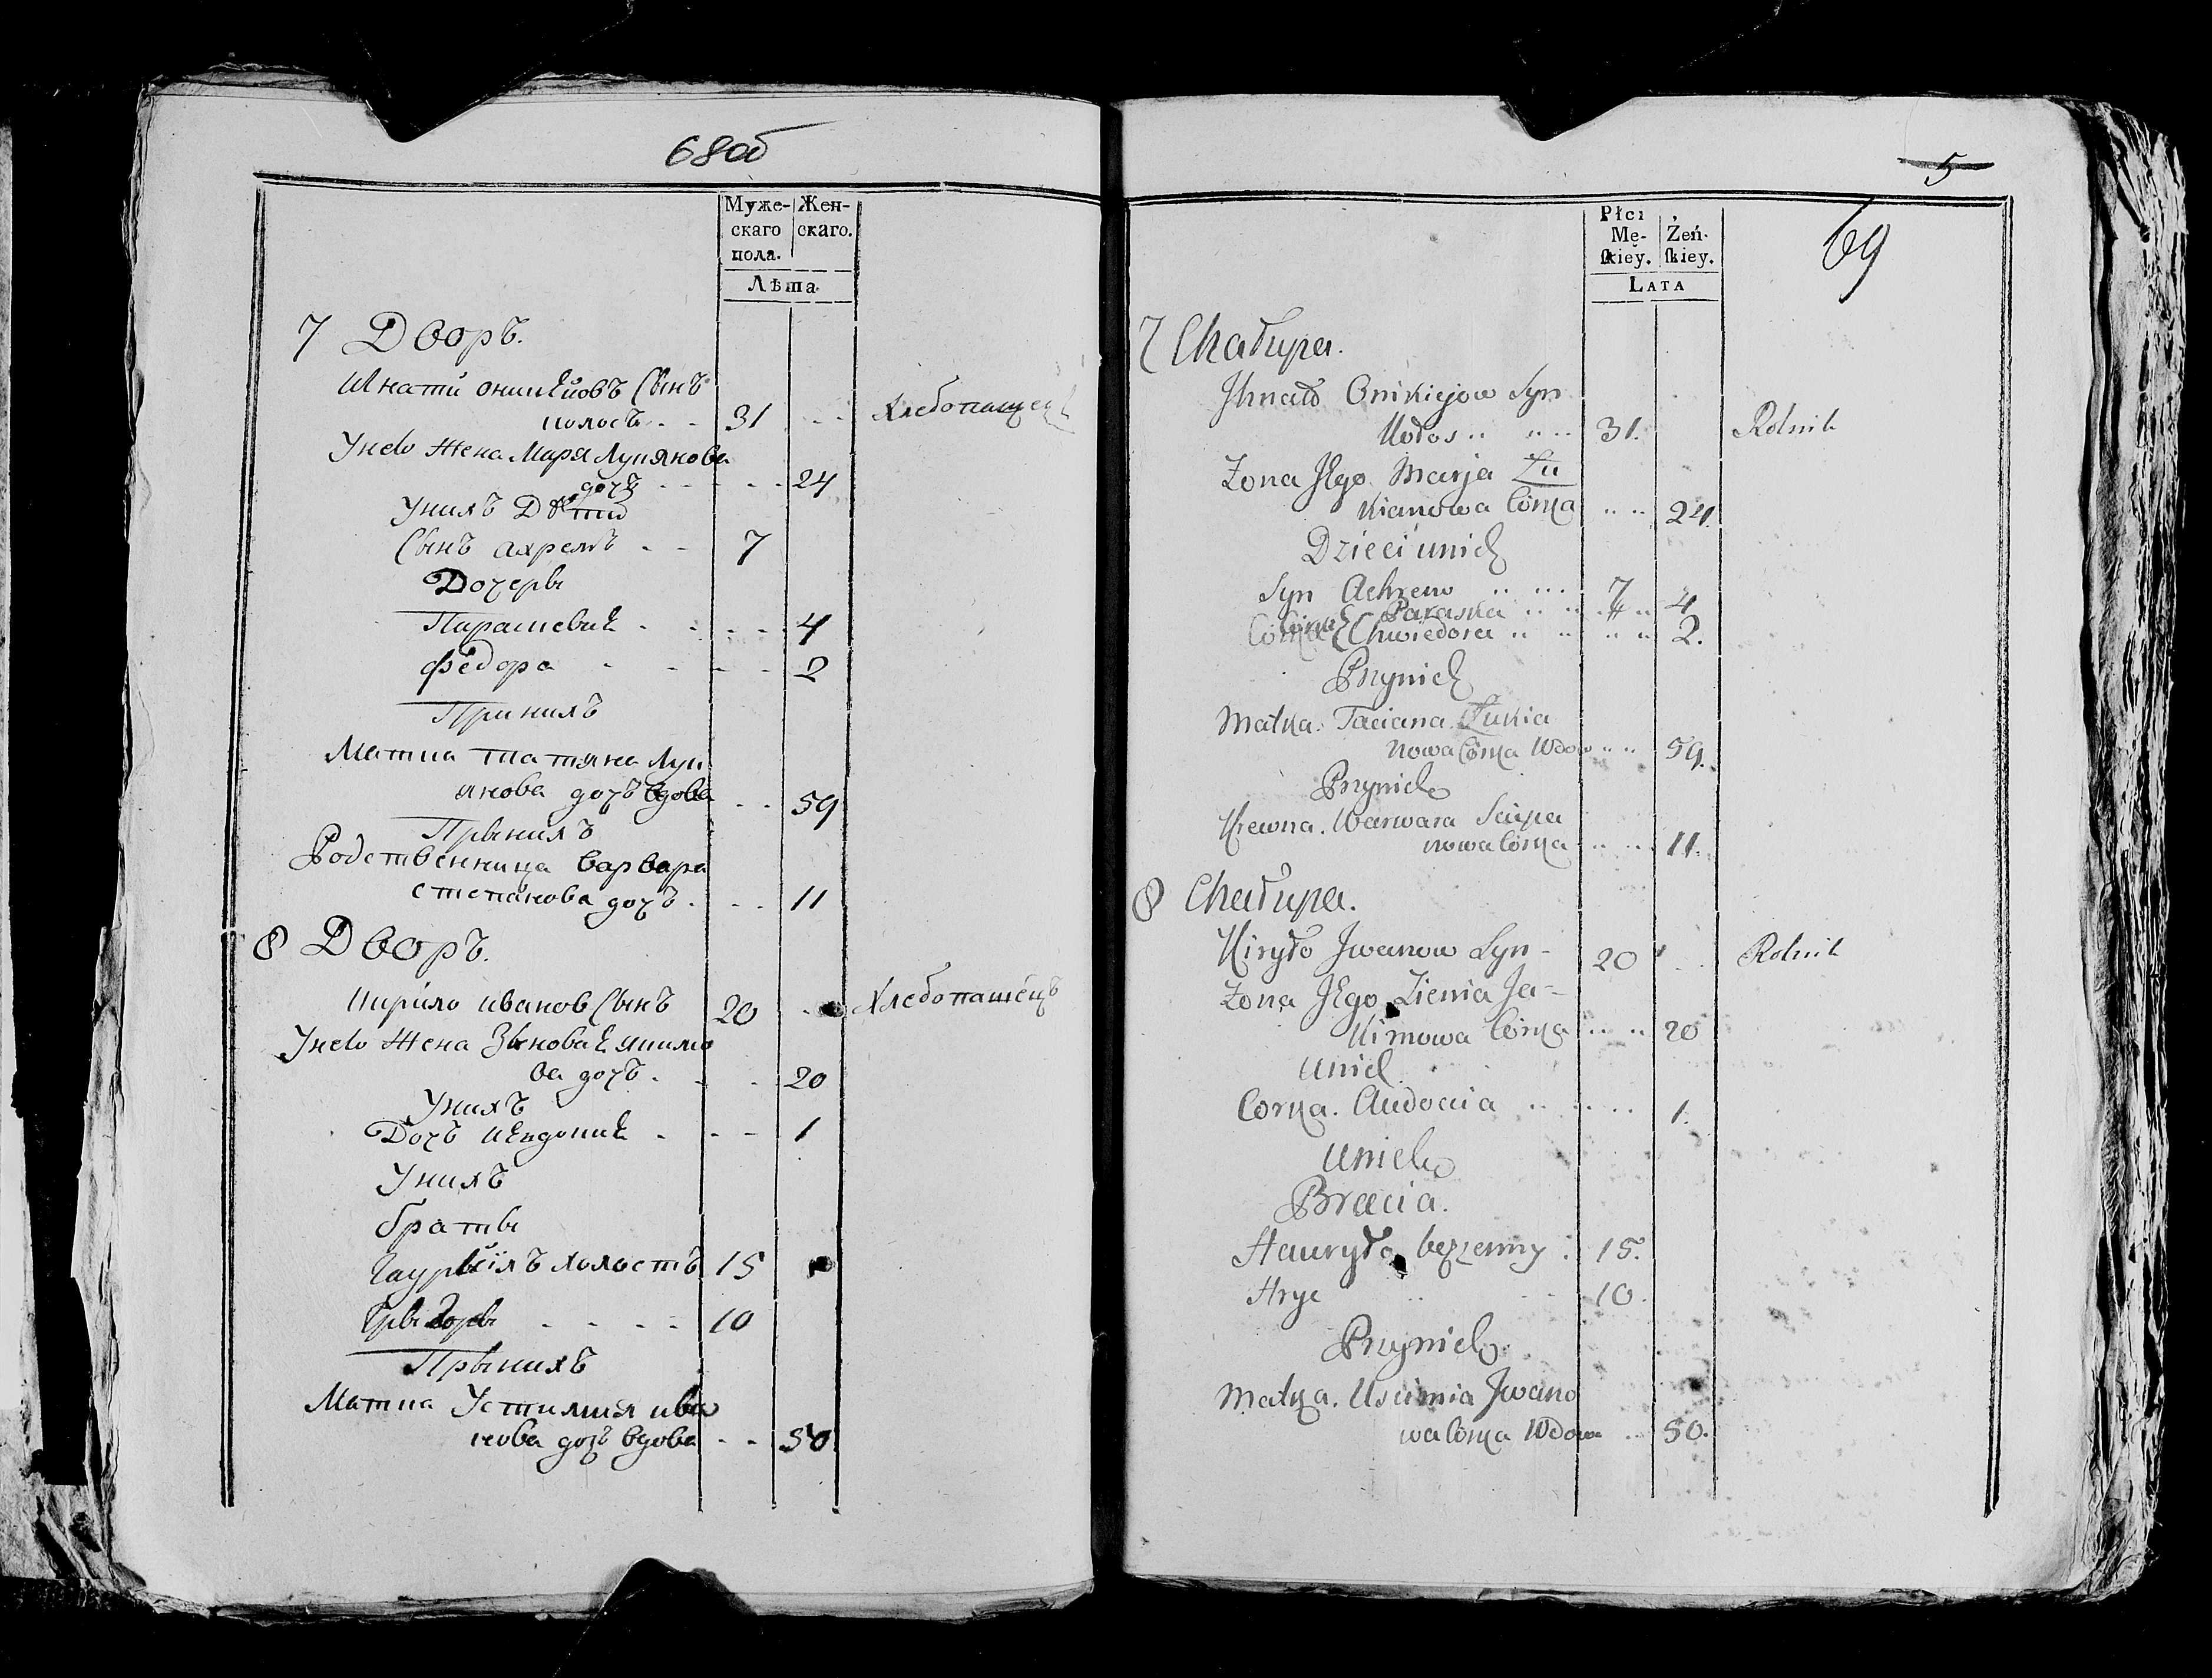 68об
Муже- Жен-
скаго скаго.
пола.
Лѣта.
7 Дворъ.
Игнатй Оникѣйовъ Сынъ
колосъ 31 Хлебопашецъ
Унево Жена Маря Лукянова
дочъ 24
Унихъ Дѣтй
Сынъ Ахремъ 7
Дочеры
Парасевиѣ 4
Федора 2
Принихъ
Матка татяна Лук
янова дочъ вдова 59
Прынихъ
Родственница варвара
степанова дочъ 11
8 Дворъ.
Кирило иванов Сынъ 20 Хлебопашецъ
Унево Жена Зѣновиѣ якимо
ва дочъ 20
Унихъ
Дочъ 1
Унихъ
браты
холостъ 15
Грыгоры 10
Прынихъ
Матка Устимия ива
нова дочъ вдова 50
5
69
Płci
Mę- Żeń-
ſkiey. ſkiey.
LATA
7 Chałupa.
Ihnat Onikiejow Syn
Kołos 31. Rolnik
Zona Jego Marja Łu
kianowa Córka 24.
Dzieci unich
Syn Achrem 7
Córka Paraska 4
Córka Chwiedora 2.
Przynich
Matka. Taciana Łukia
nowa Córka Wdow 59.
Przynich
Krewna. Warwara Sciepa
nowa Córka 11.
8 Chałupa.
Kiryło Jwanow Syn 20 Rolnik
Zona Jego Zienia Ja-
kimowa Córka 20
unich
Corka. Audocia 1.
unich
Bracia.
Hauryło bezzenny 15.
Hryc 10.
Przynich.
Matka. Uscimia Jwano
wa Córka Wdowa 50.